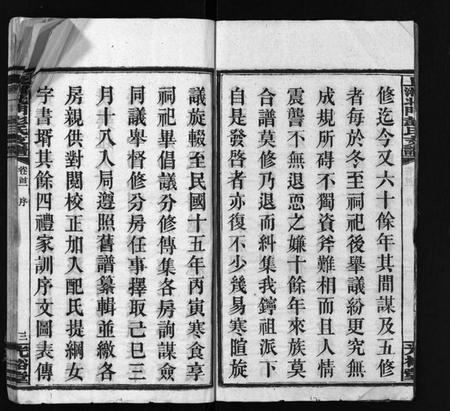 修迄今又六十餘年其間謀及五修
者每於冬至祠祀後舉議紛更究無
成規所碍不獨資斧難相而且人情
震聾不無退恧之嫌十餘年來族莫
合譜莫修乃退而糾集我鐸祖派下
自是發啓者亦復不少幾易寒暄旋
議旋輟至民國十五年丙寅寒食享
祀祠畢倡議分修傳集各房詢謀僉
同議舉督修分房任事擇取己巳三
月十八入局遵照舊譜纂輯並繳各
房親供對閱校正加入配氏提綱女
字書壻其餘四禮家訓序文圖表傳
卷首
序
三